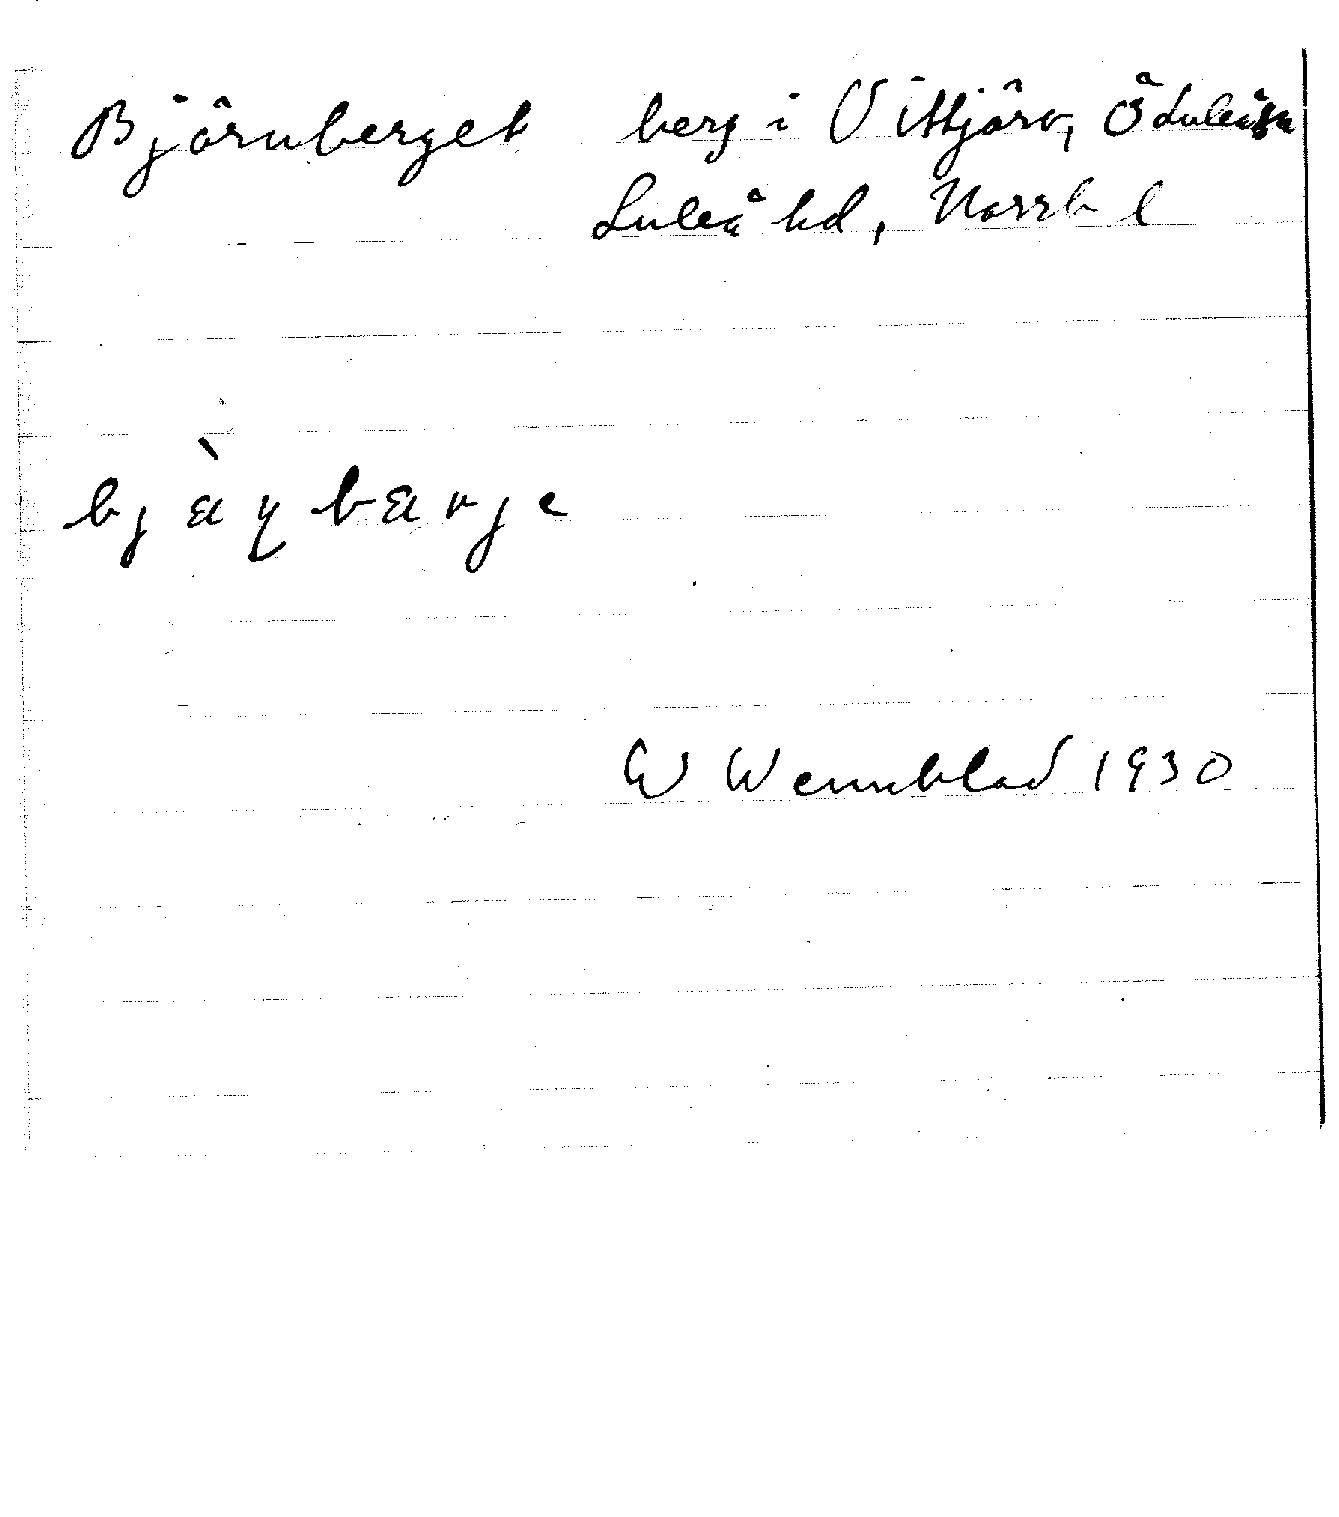 Björnberget berg i Vittjärv, Ö Luleå sn
Luleå hd, Norrb l
bjæ̀ɳbærje
W Wennblad 1930